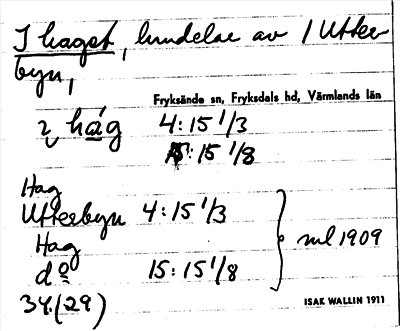 I haget, hundelar av 1 Utter
byn,
Fryksände sn, Fryksdals hd, Värmlands län
2 hág 4:15 1/3
15:15 1/8
Hag
Utterbyn 4:15 1/3
Hag
do 15:15 1/8
ml 1909
34.(29)
ISAK WALLIN 1911